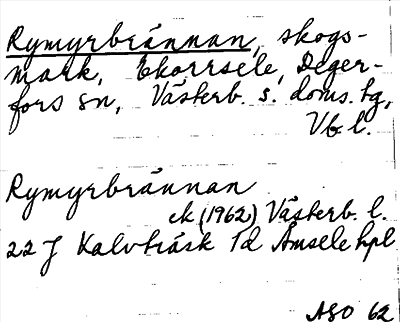 Rymyrbrännan, skogs-
mark, Ekorrsele, Deger-
fors sn, Västerb. s. doms. tg,
Vb l.
Rymyrbrännan
ek (1962) Västerb. l.
22 J Kalvträsk 1d Åmsele hpl
ASO 62